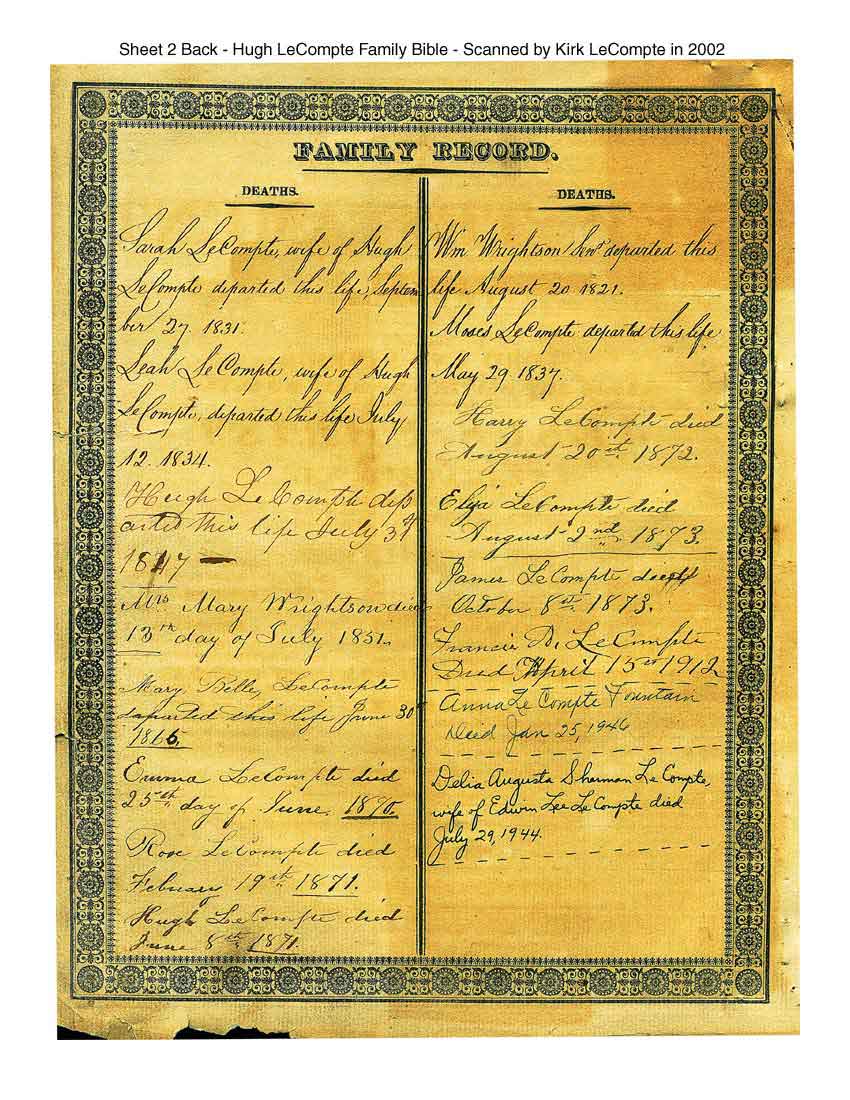 Sheet 2 Back - Hugh LeCompte Family Bible - Scanned by Kirk LeCompte in 2002
FAMILY RECORD.
DEATHS.
Sarah LeCompte, wife of Hugh
LeCompte departed this life, Septem
ber 27. 1831.
Leah LeCompte, wife of Hugh
LeCompte, departed this life July
12. 1834.
Hugh LeCompte dep
arted this life July 3d
1847 —
Mrs Mary Wrightson died
13th day of July 1851.
Mary Belle, LeCompte
departed this life June 30
1866.
Emma LeCompte died
25th day of June. 1870.
Rose LeCompte died
Febuary 19th 1871.
Hugh LeCompte died
June 8th 1871.
DEATHS.
Wm Wrightson Senr departed this
life August 20 1821.
Moses LeCompte departed this life
May 29 1837.
Harry LeCompte died
August 20st. 1872.
Elija LeCompte died
August 2nd 1873.
James LeCompte died
October 8th. 1873.
Francis D. LeCompte
Died April 15st 1912
Anna Le Compte Fountain
Died Jan 25, 1946
Delia Augusta Sharman Le Compte,
wife of Edwin Lee Le Compte died
July 29, 1944.